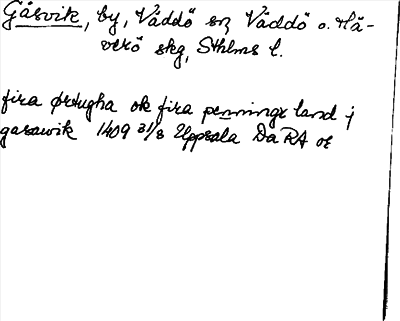 Gåsvik, by, Väddö sn, Väddö o. Hä-
verö skg, Sthlms l.
fira ørtugha ok fira penninge land j
gasawik 1409 31/8 Uppsala DaRA or